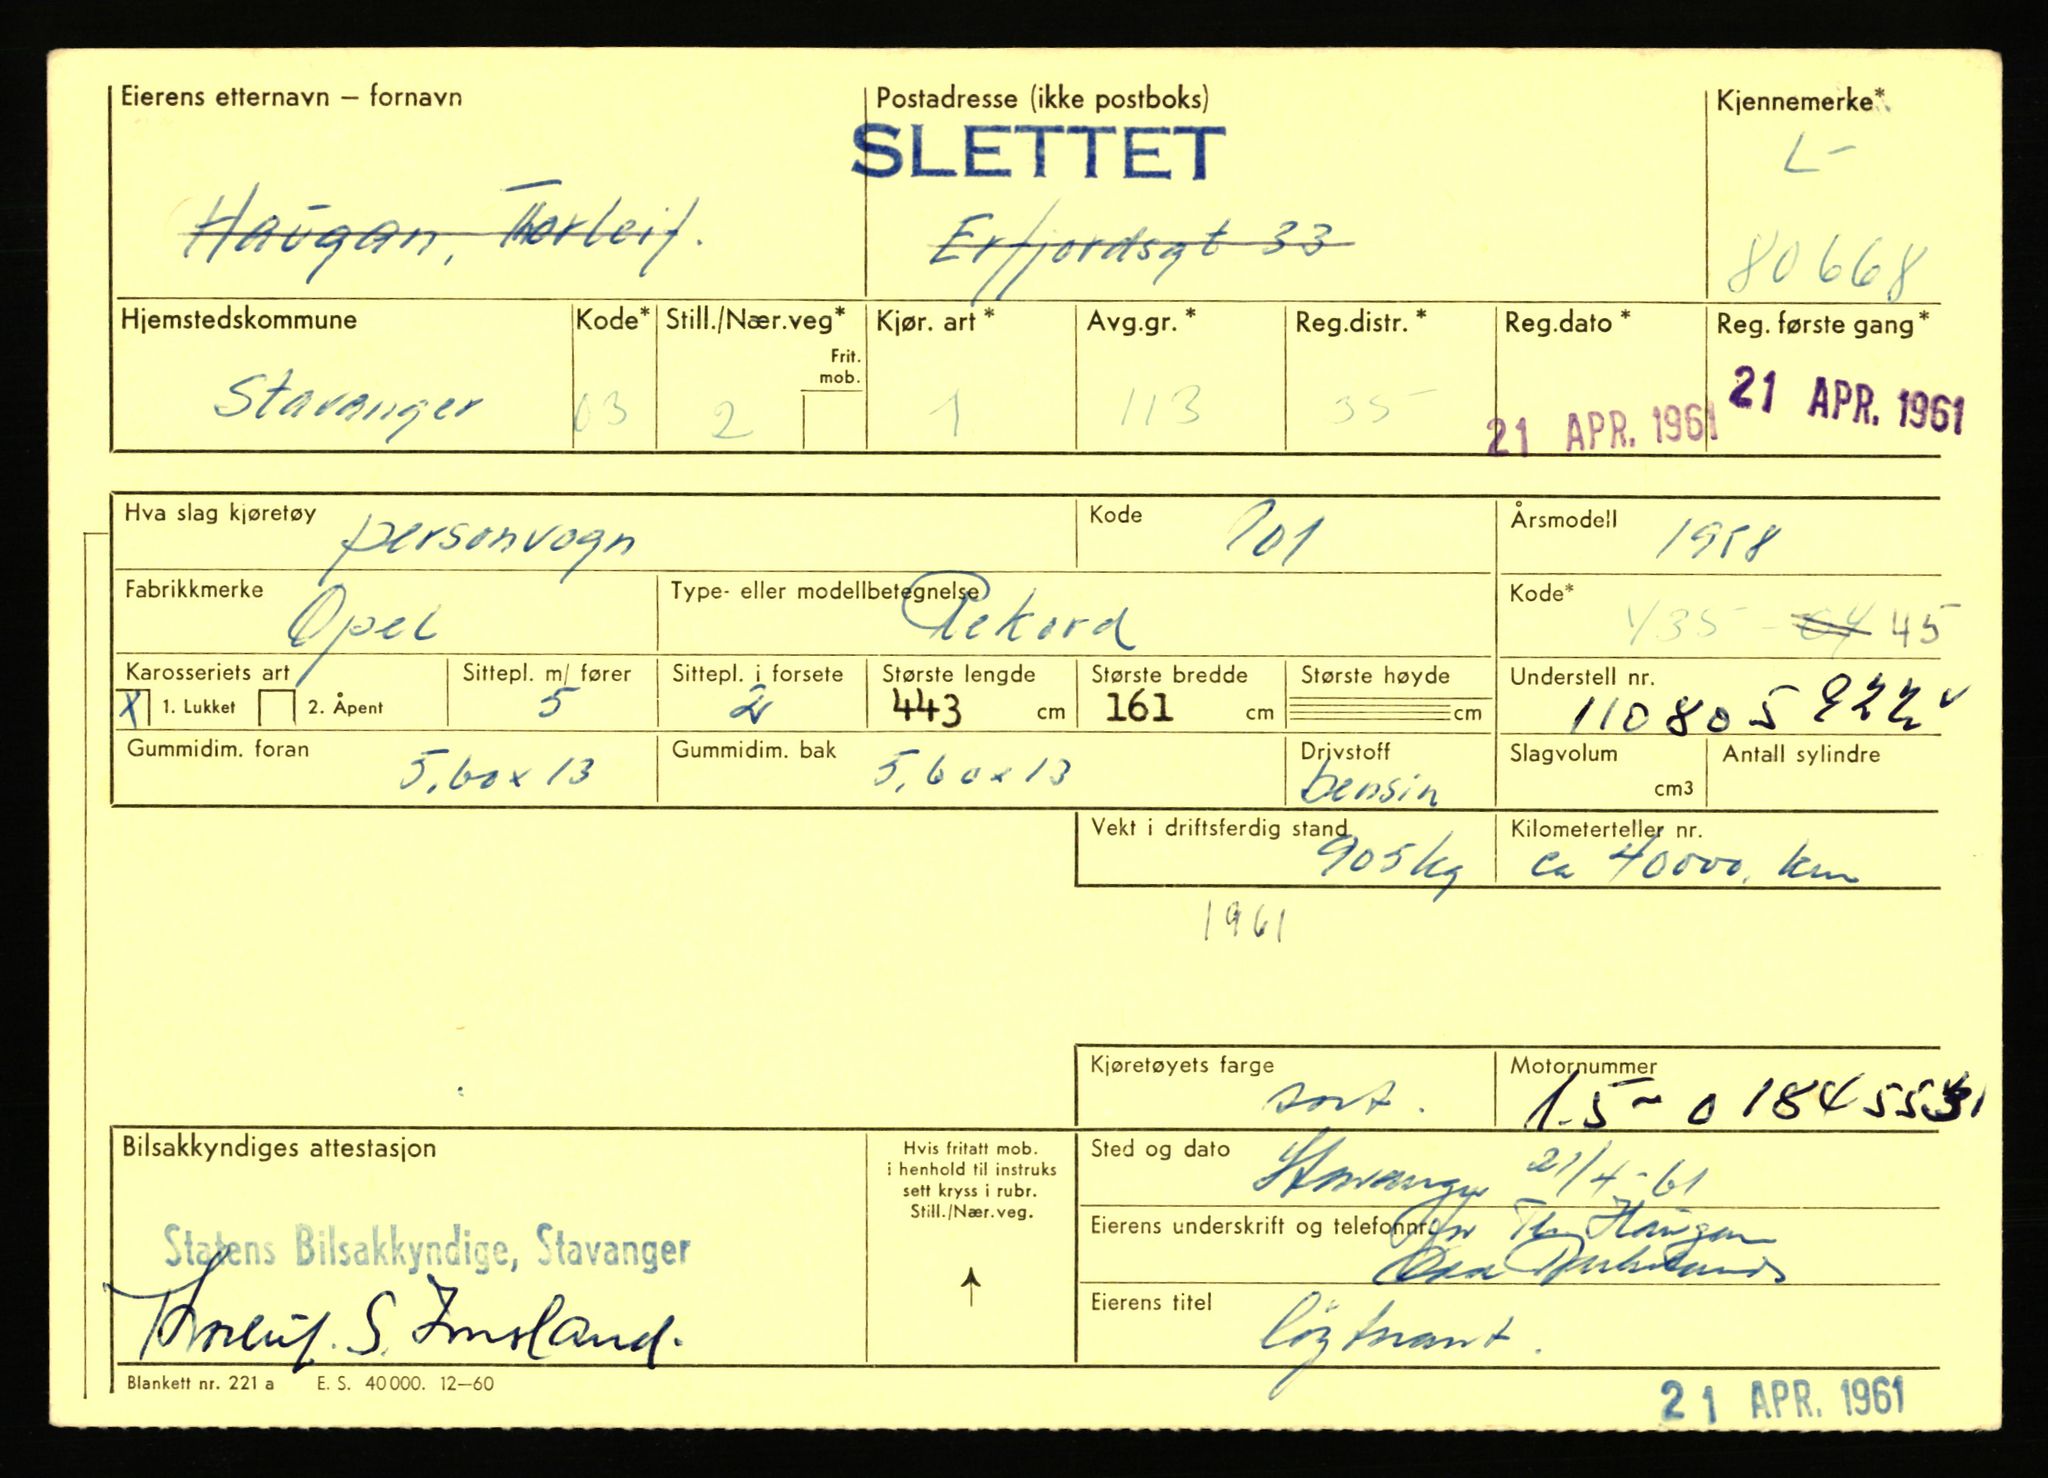 Eierens etternavn – fornavn Postadresse (ikke postboks) Kjennemerke*
SLETTET
L-
Haugan, Thorleif. Erfjordsgt 33 80668
Hjemstedskommune Kode* Still./Nær.veg* Kjør. art* Avg.gr.* Reg.distr.* Reg.dato* Reg. første gang*
Frit. mob.
Stavanger 03 2 1 113 35 21 APR. 1961 21 APR. 1961
Hva slag kjøretøy personvogn Kode 101 Årsmodell 1958
Fabrikkmerke Opel Type- eller modellbetegnelse Rekord Kode* 435 - 64 45
Karosseriets art Sittepl. m/ fører Sittepl. i forsete Største lengde Største bredde Største høyde Understell nr.
X 1. Lukket 2. Åpent 5 2 443 cm 161 cm cm 110805
Gummidim. foran 5,60x13 Gummidim. bak 5,60x13 Drivstoff bensin Slagvolum cm3 Antall sylindre
Vekt i driftsferdig stand 905kg Kilometerteller nr. ca 40000. km
1961
Kjøretøyets farge sort. Motornummer 1.5-
Bilsakkyndiges attestasjon Hvis fritatt mob. i henhold til instruks sett kryss i rubr. Still./Nær.veg. Sted og dato Stavanger 21/4-61
Statens Bilsakkyndige, Stavanger Eierens underskrift og telefonnr. Haugan
S. Imsland. Eierens titel løytnant.
Blankett nr. 221 a E. S. 40000. 12–60
21 APR. 1961